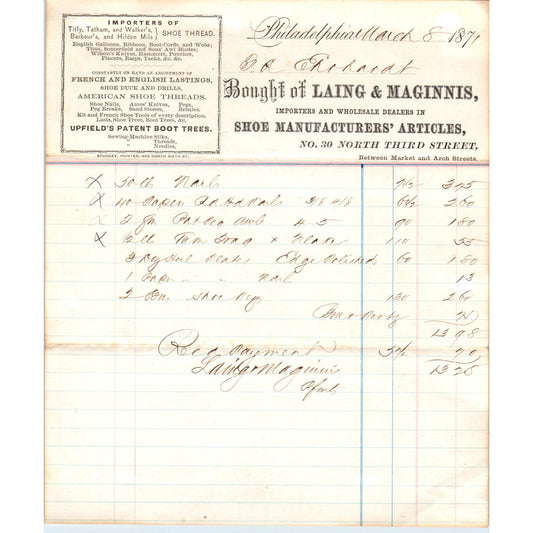 IMPORTERS OF
Titly, Tatham, and Walker's,
Barbour's, and Hilden Mils
SHOE THREAD.
English Galloons, Ribbons, Boot-Cords, and Webs;
Thos. Somerfield and Sons' Awl Blades;
Wilson's Knives, Hammers, Punches,
Pincers, Rasps, Tacks, &c. &c.
CONSTANTLY ON HAND AN ASSORTMENT OF
FRENCH AND ENGLISH LASTINGS,
SHOE DUCK AND DRILLS,
AMERICAN SHOE THREADS.
Shoe Nails, Ames' Knives, Pegs,
Peg Breaks, Sand Stones, Bristles,
Kit and French Shoe Tools of every description.
Lasts, Shoe Trees, Boot Trees, &c.
UPFIELD'S PATENT BOOT TREES.
Sewing-Machine Silks,
" Threads,
" Needles,
STUCKEY, PRINTER, 403 NORTH SIXTH ST.
Philadelphia March 8 1871
Ehrhardt
Bought of LAING & MAGINNIS,
IMPORTERS AND WHOLESALE DEALERS IN
SHOE MANUFACTURERS' ARTICLES,
NO. 30 NORTH THIRD STREET,
Between Market and Arch Streets.
x 50 lb Nails 7½ 375
x 40 Paper 6½ 260
x 2 Awls 4 5 90 180
x 110 55
3 Edge Polished 60 180
1 Paper " " Nail 13
2 Shoe Pegs 130 260
1398
Rec Payment 5% 70
Laing & Maginnis 1328